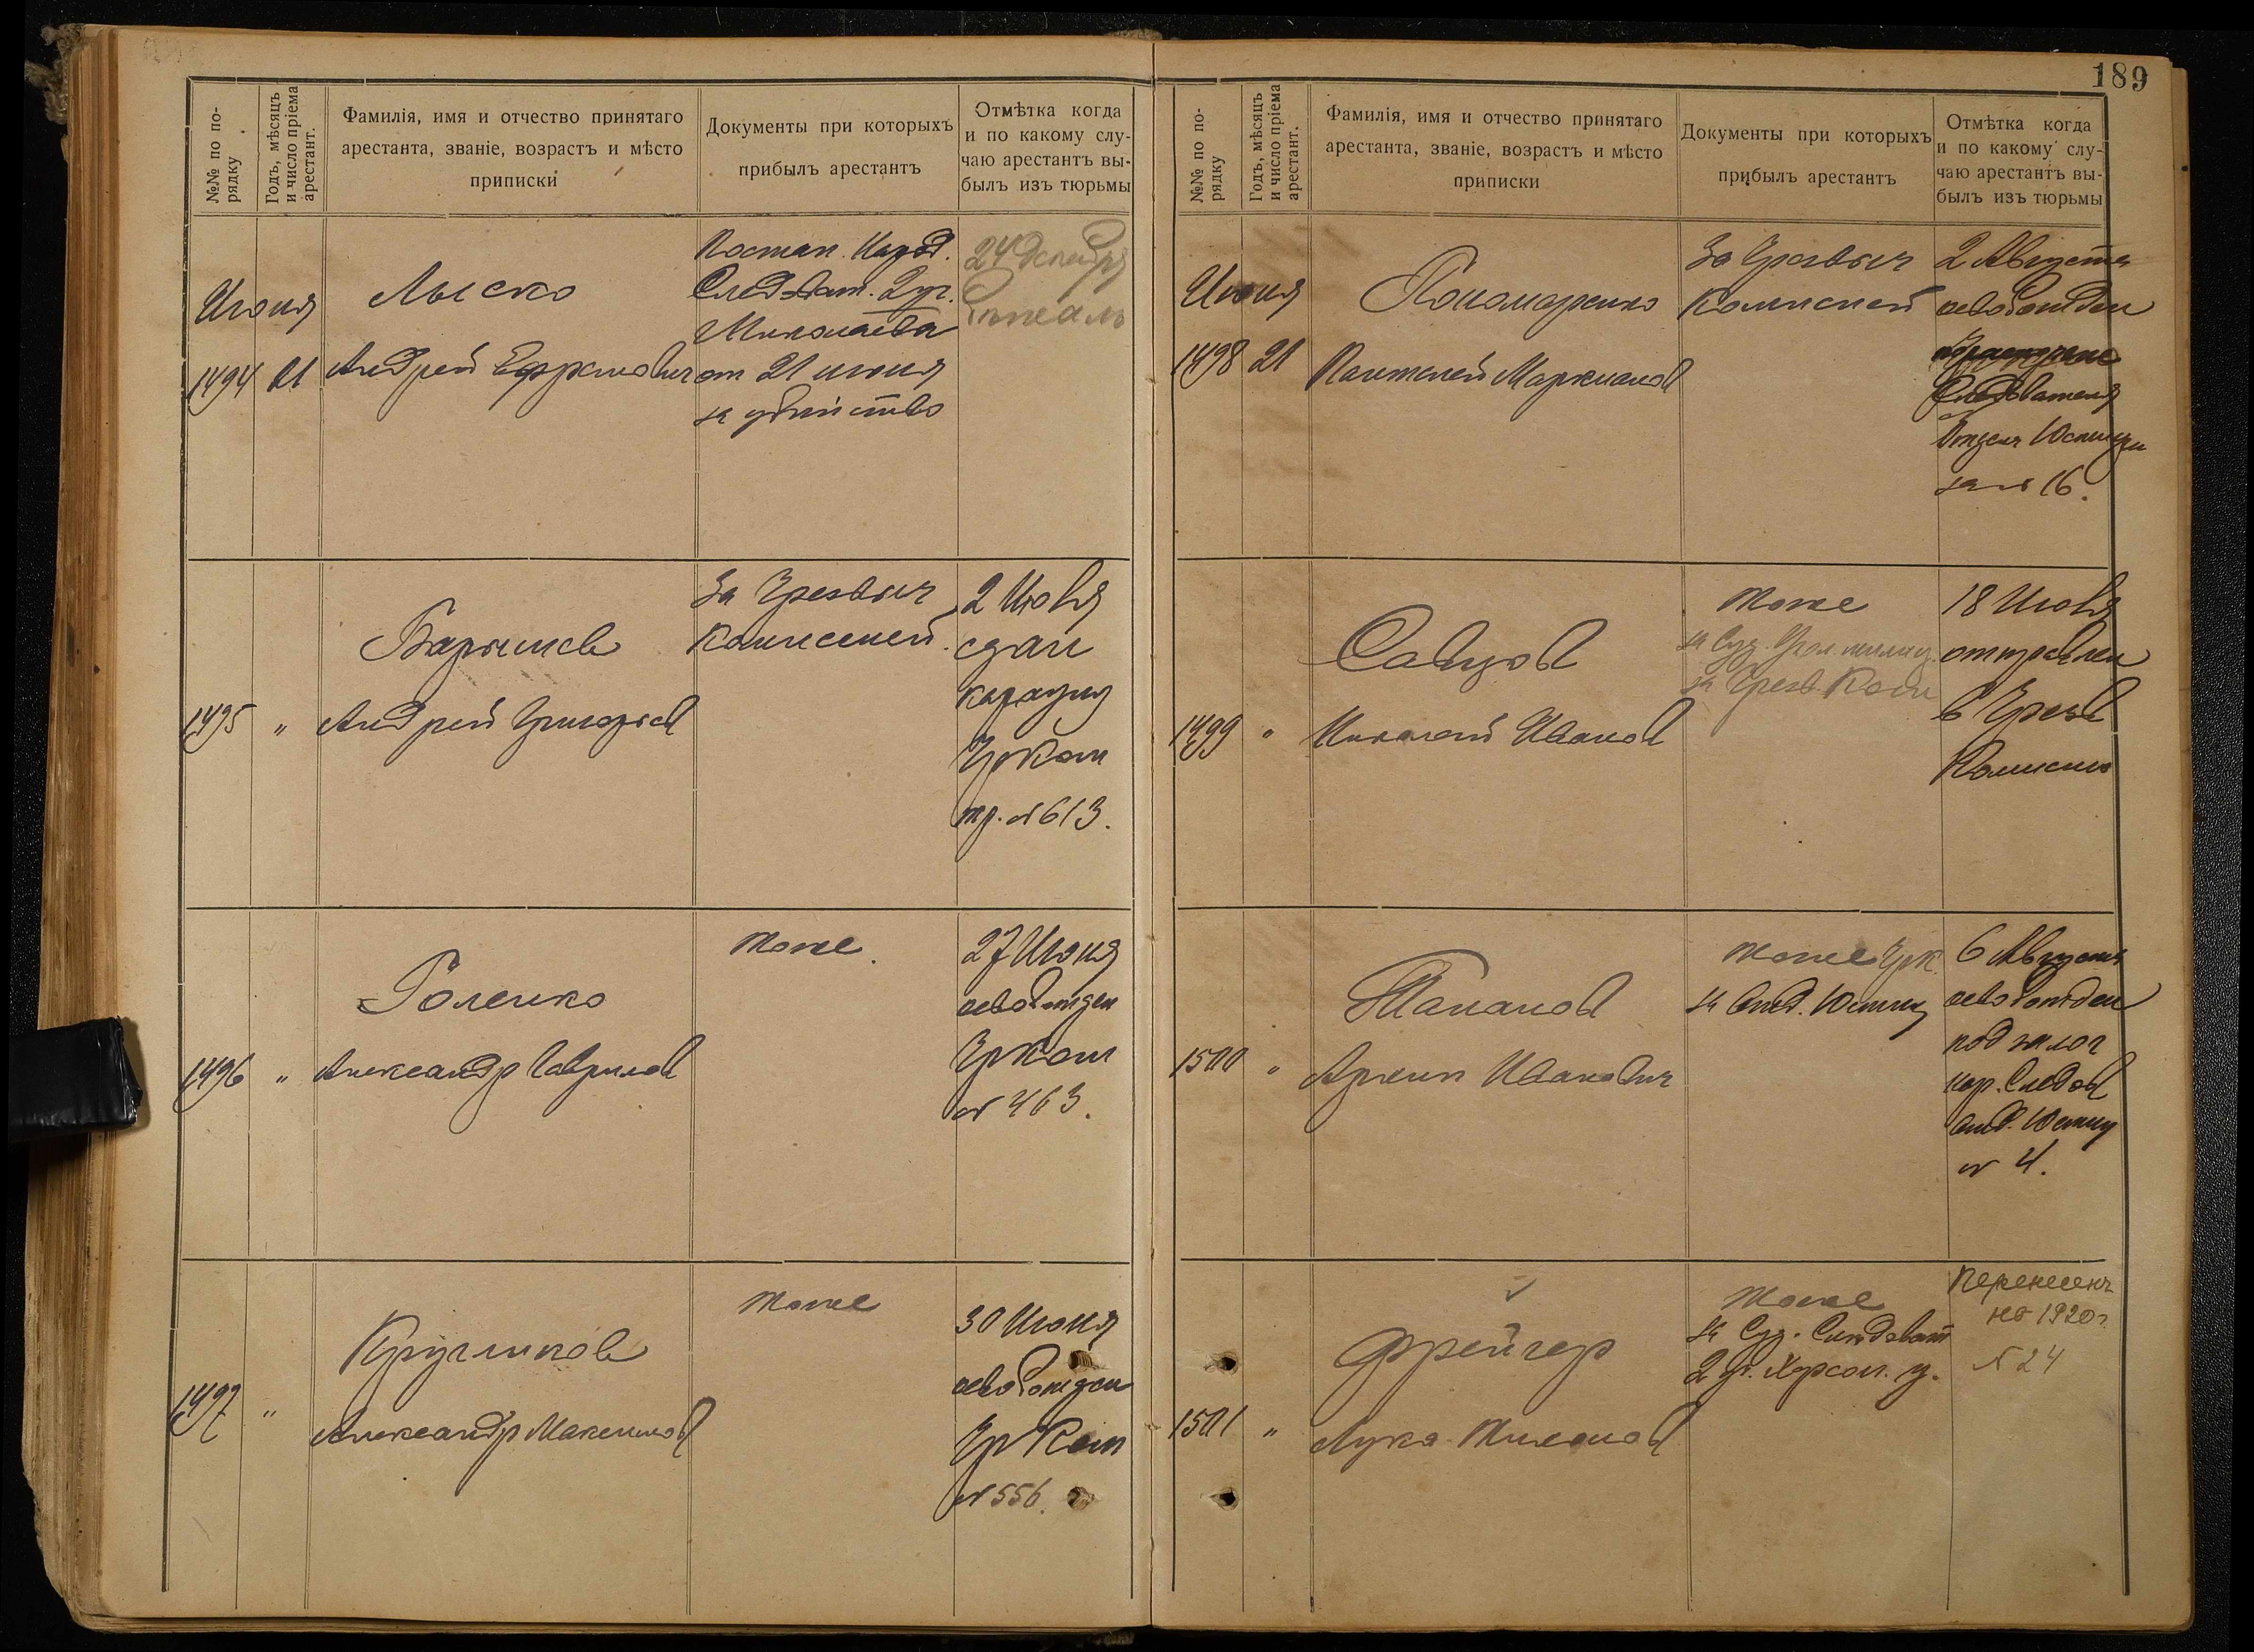 №№ по по-
рядку
Годъ, мѣсяцъ
и число пріема
арестант.
Фамилія, имя и отчество принятаго
арестанта, званіе, возрастъ и мѣсто
приписки
Документы при которыхъ
прибылъ арестантъ
Отмѣтка когда
и по какому слу-
чаю арестантъ вы-
былъ изъ тюрьмы
Июня
1494 21
Лыско
Андрей
Постан. Народ.
Следоват. 2 уч.
Николаева
от 21 июня
за убийство
24 декабря
1495 "
Барышев
Андрей Григорьев
За Чрезвыч
Комиссией.
2 Июля
сдан
караулу
ЧрКом
пр. № 613.
1496 "
Голенко
Александр Гаврилов
тоже.
27 Июня
освобожден
ЧрКом
№ 463.
1497 "
Кругликов
Александр Максимов
тоже
30 Июня
освобожден
Чр Ком
№ 556.
189
№№ по по-
рядку
Годъ, мѣсяцъ
и число пріема
арестант.
Фамилія, имя и отчество принятаго
арестанта, званіе, возрастъ и мѣсто
приписки
Документы при которыхъ
прибылъ арестантъ
Отмѣтка когда
и по какому слу-
чаю арестантъ вы-
былъ изъ тюрьмы
Июня
1498 21
Пономаренко
Пантелей Маркианов
За Чрезвыч
Комиссией
2 Августа
освобожден
Следователя
Отдела Юстиции
за № 16.
1499 "
Савцов
Николай Иванов
тоже
за Чрезв. Ком
18 Июля
отправлен
в Чрезв
Комиссию
1500 "
Иванович
тоже Чрк.
за Отд. Юстиц
6 Августа
освобожден
под залог
нар. Следов
отд. Юстиц
№ 4.
1501 "
Фрейгер
Лука
тоже
за Суд. Следоват
2 уч. Херсон. у.
Перенесенъ
на 1920 г
№ 24